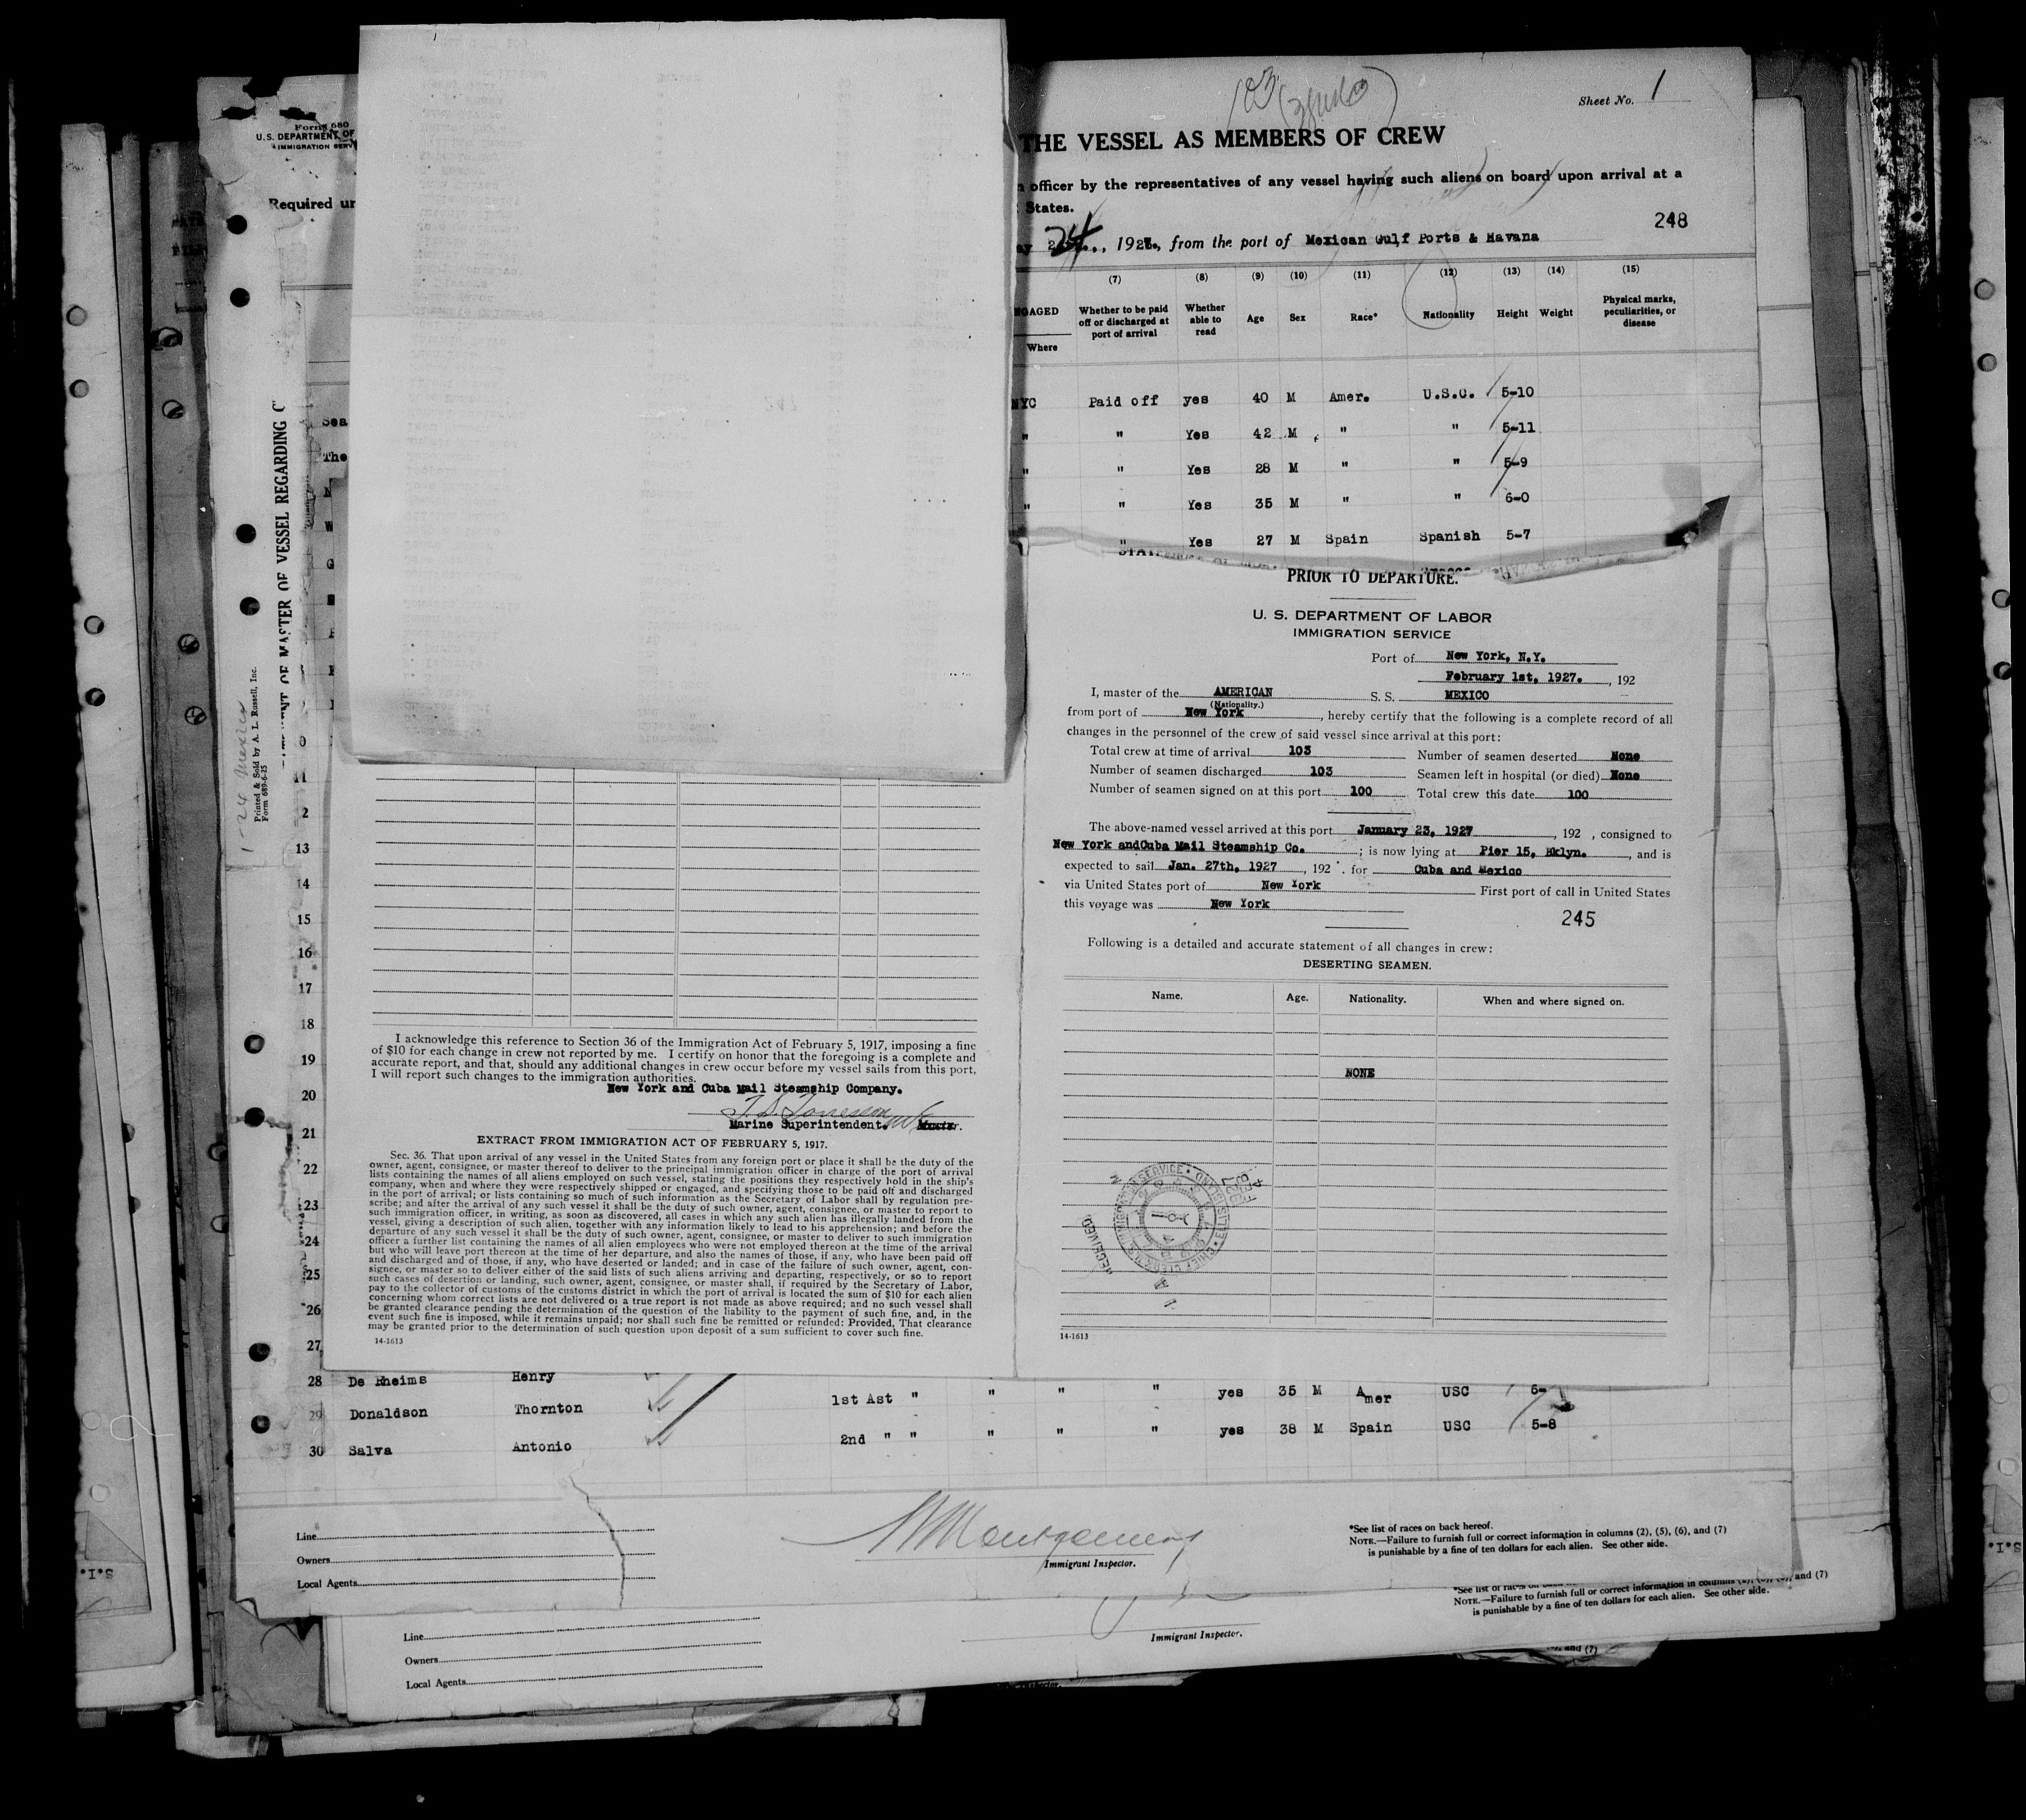 Form 680
U.S. DEPARTMENT OF
IMMIGRATION SERV
Required un
Sheet No. 1
103
THE VESSEL AS MEMBERS OF CREW
officer by the representatives of any vessel having such aliens on board upon arrival at a
States.
248
24, 192, from the port of Mexican Gulf Ports & Havana
(7) (8) (9) (10) (11) (12) (13) (14) (15)
GAGED Where
Whether to be paid off or discharged at port of arrival
Whether able to read
Age Sex Race* Nationality Height Weight
Physical marks, peculiarities, or disease
NYC Paid off yes 40 M Amer. U.S.C. 5-10
" " Yes 42 M " " 5-11
" " Yes 28 M " " 5-9
" " Yes 35 M " " 6-0
" Yes 27 M Spain Spanish 5-7
OF MASTER OF VESSEL REGARDING C
Printed & Sold by A. L. Russell, Inc.
Form 689-6-25
1-24 Mexico
PRIOR TO DEPARTURE.
U. S. DEPARTMENT OF LABOR
IMMIGRATION SERVICE
Port of New York, N.Y.
February 1st, 1927. , 192
I, master of the AMERICAN S. S. MEXICO
(Nationality.)
from port of New York , hereby certify that the following is a complete record of all
changes in the personnel of the crew of said vessel since arrival at this port:
Total crew at time of arrival 103 Number of seamen deserted None
Number of seamen discharged 103 Seamen left in hospital (or died) None
Number of seamen signed on at this port 100 Total crew this date 100
The above-named vessel arrived at this port January 23, 1927 , 192 , consigned to
New York andCuba Mail Steamship Co. ; is now lying at Pier 15, Bklyn. , and is
expected to sail Jan. 27th, 1927 , 192 . for Cuba and Mexico
via United States port of New York First port of call in United States
this voyage was New York
245
Following is a detailed and accurate statement of all changes in crew:
DESERTING SEAMEN.
Name. Age. Nationality. When and where signed on.
NONE
RECEIVED
FEB 4
1927
14-1613
11
12
13
14
15
16
17
18
19
20
21
22
23
24
25
26
27
I acknowledge this reference to Section 36 of the Immigration Act of February 5, 1917, imposing a fine
of $10 for each change in crew not reported by me. I certify on honor that the foregoing is a complete and
accurate report, and that, should any additional changes in crew occur before my vessel sails from this port,
I will report such changes to the immigration authorities.
New York and Cuba Mail Steamship Company.
Marine Superintendent. Master.
EXTRACT FROM IMMIGRATION ACT OF FEBRUARY 5, 1917.
Sec. 36. That upon arrival of any vessel in the United States from any foreign port or place it shall be the duty of the
owner, agent, consignee, or master thereof to deliver to the principal immigration officer in charge of the port of arrival
lists containing the names of all aliens employed on such vessel, stating the positions they respectively hold in the ship's
company, when and where they were respectively shipped or engaged, and specifying those to be paid off and discharged
in the port of arrival; or lists containing so much of such information as the Secretary of Labor shall by regulation pre-
scribe; and after the arrival of any such vessel it shall be the duty of such owner, agent, consignee, or master to report to
such immigration officer, in writing, as soon as discovered, all cases in which any such alien has illegally landed from the
vessel, giving a description of such alien, together with any information likely to lead to his apprehension; and before the
departure of any such vessel it shall be the duty of such owner, agent, consignee, or master to deliver to such immigration
officer a further list containing the names of all alien employees who were not employed thereon at the time of the arrival
but who will leave port thereon at the time of her departure, and also the names of those, if any, who have been paid off
and discharged and of those, if any, who have deserted or landed; and in case of the failure of such owner, agent, con-
signee, or master so to deliver either of the said lists of such aliens arriving and departing, respectively, or so to report
such cases of desertion or landing, such owner, agent, consignee, or master shall, if required by the Secretary of Labor,
pay to the collector of customs of the customs district in which the port of arrival is located the sum of $10 for each alien
concerning whom correct lists are not delivered or a true report is not made as above required; and no such vessel shall
be granted clearance pending the determination of the question of the liability to the payment of such fine, and, in the
event such fine is imposed, while it remains unpaid; nor shall such fine be remitted or refunded: Provided, That clearance
may be granted prior to the determination of such question upon deposit of a sum sufficient to cover such fine.
14-1613
28 De Rheims Henry
29 Donaldson Thornton 1st Ast " " " " yes 35 M Amer USC 6-
30 Salva Antonio 2nd " " " " " yes 38 M Spain USC 5-8
Line
Owners
Local Agents
Montgomery
Immigrant Inspector.
*See list of races on back hereof.
NOTE.—Failure to furnish full or correct information in columns (2), (5), (6), and (7)
is punishable by a fine of ten dollars for each alien. See other side.
Line
Owners
Local Agents
Immigrant Inspector.
*See list of races on
NOTE.—Failure to furnish full or correct information in columns (2), (5), (6), and (7)
is punishable by a fine of ten dollars for each alien. See other side.
and (7)